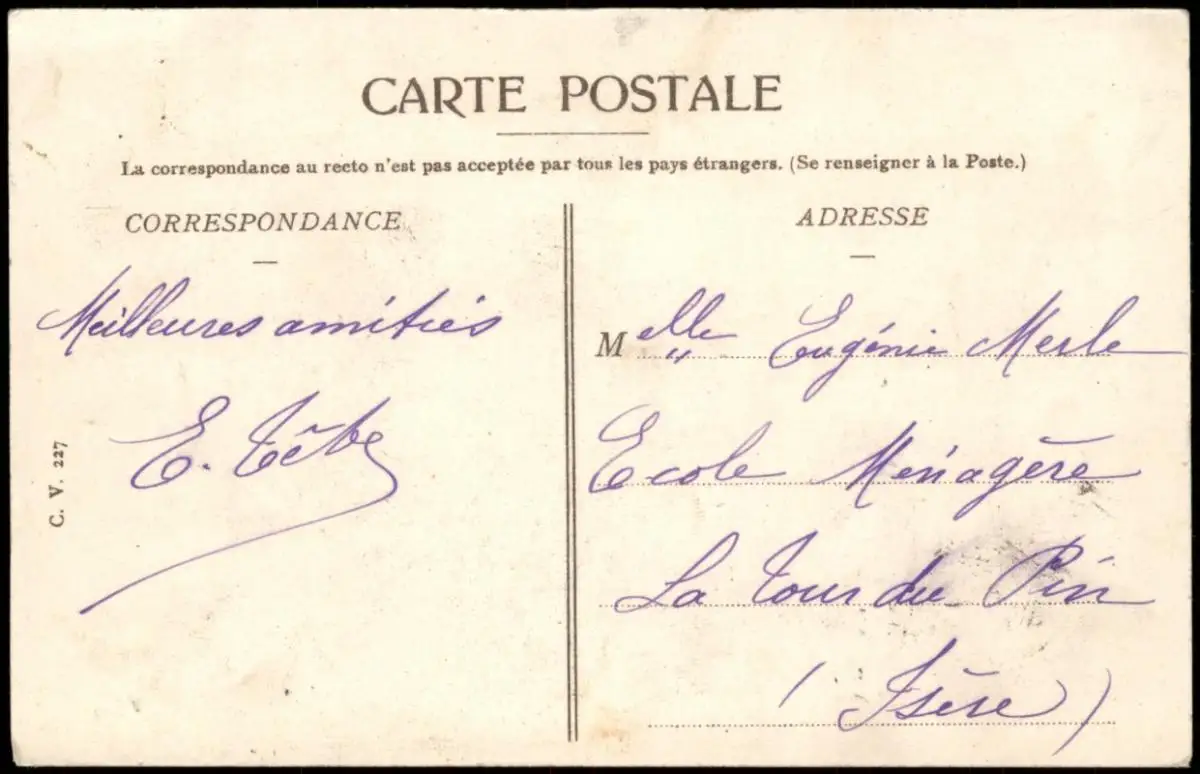 CARTE POSTALE
La correspondance au recto n'est pas acceptée par tous les pays étrangers. (Se renseigner à la Poste.)
CORRESPONDANCE
Meilleures amitiés
E. Têbe
C. V. 227
ADRESSE
Melle Eugénie Merle
Ecole Ménagère
La Tour du Pin
(Isère)